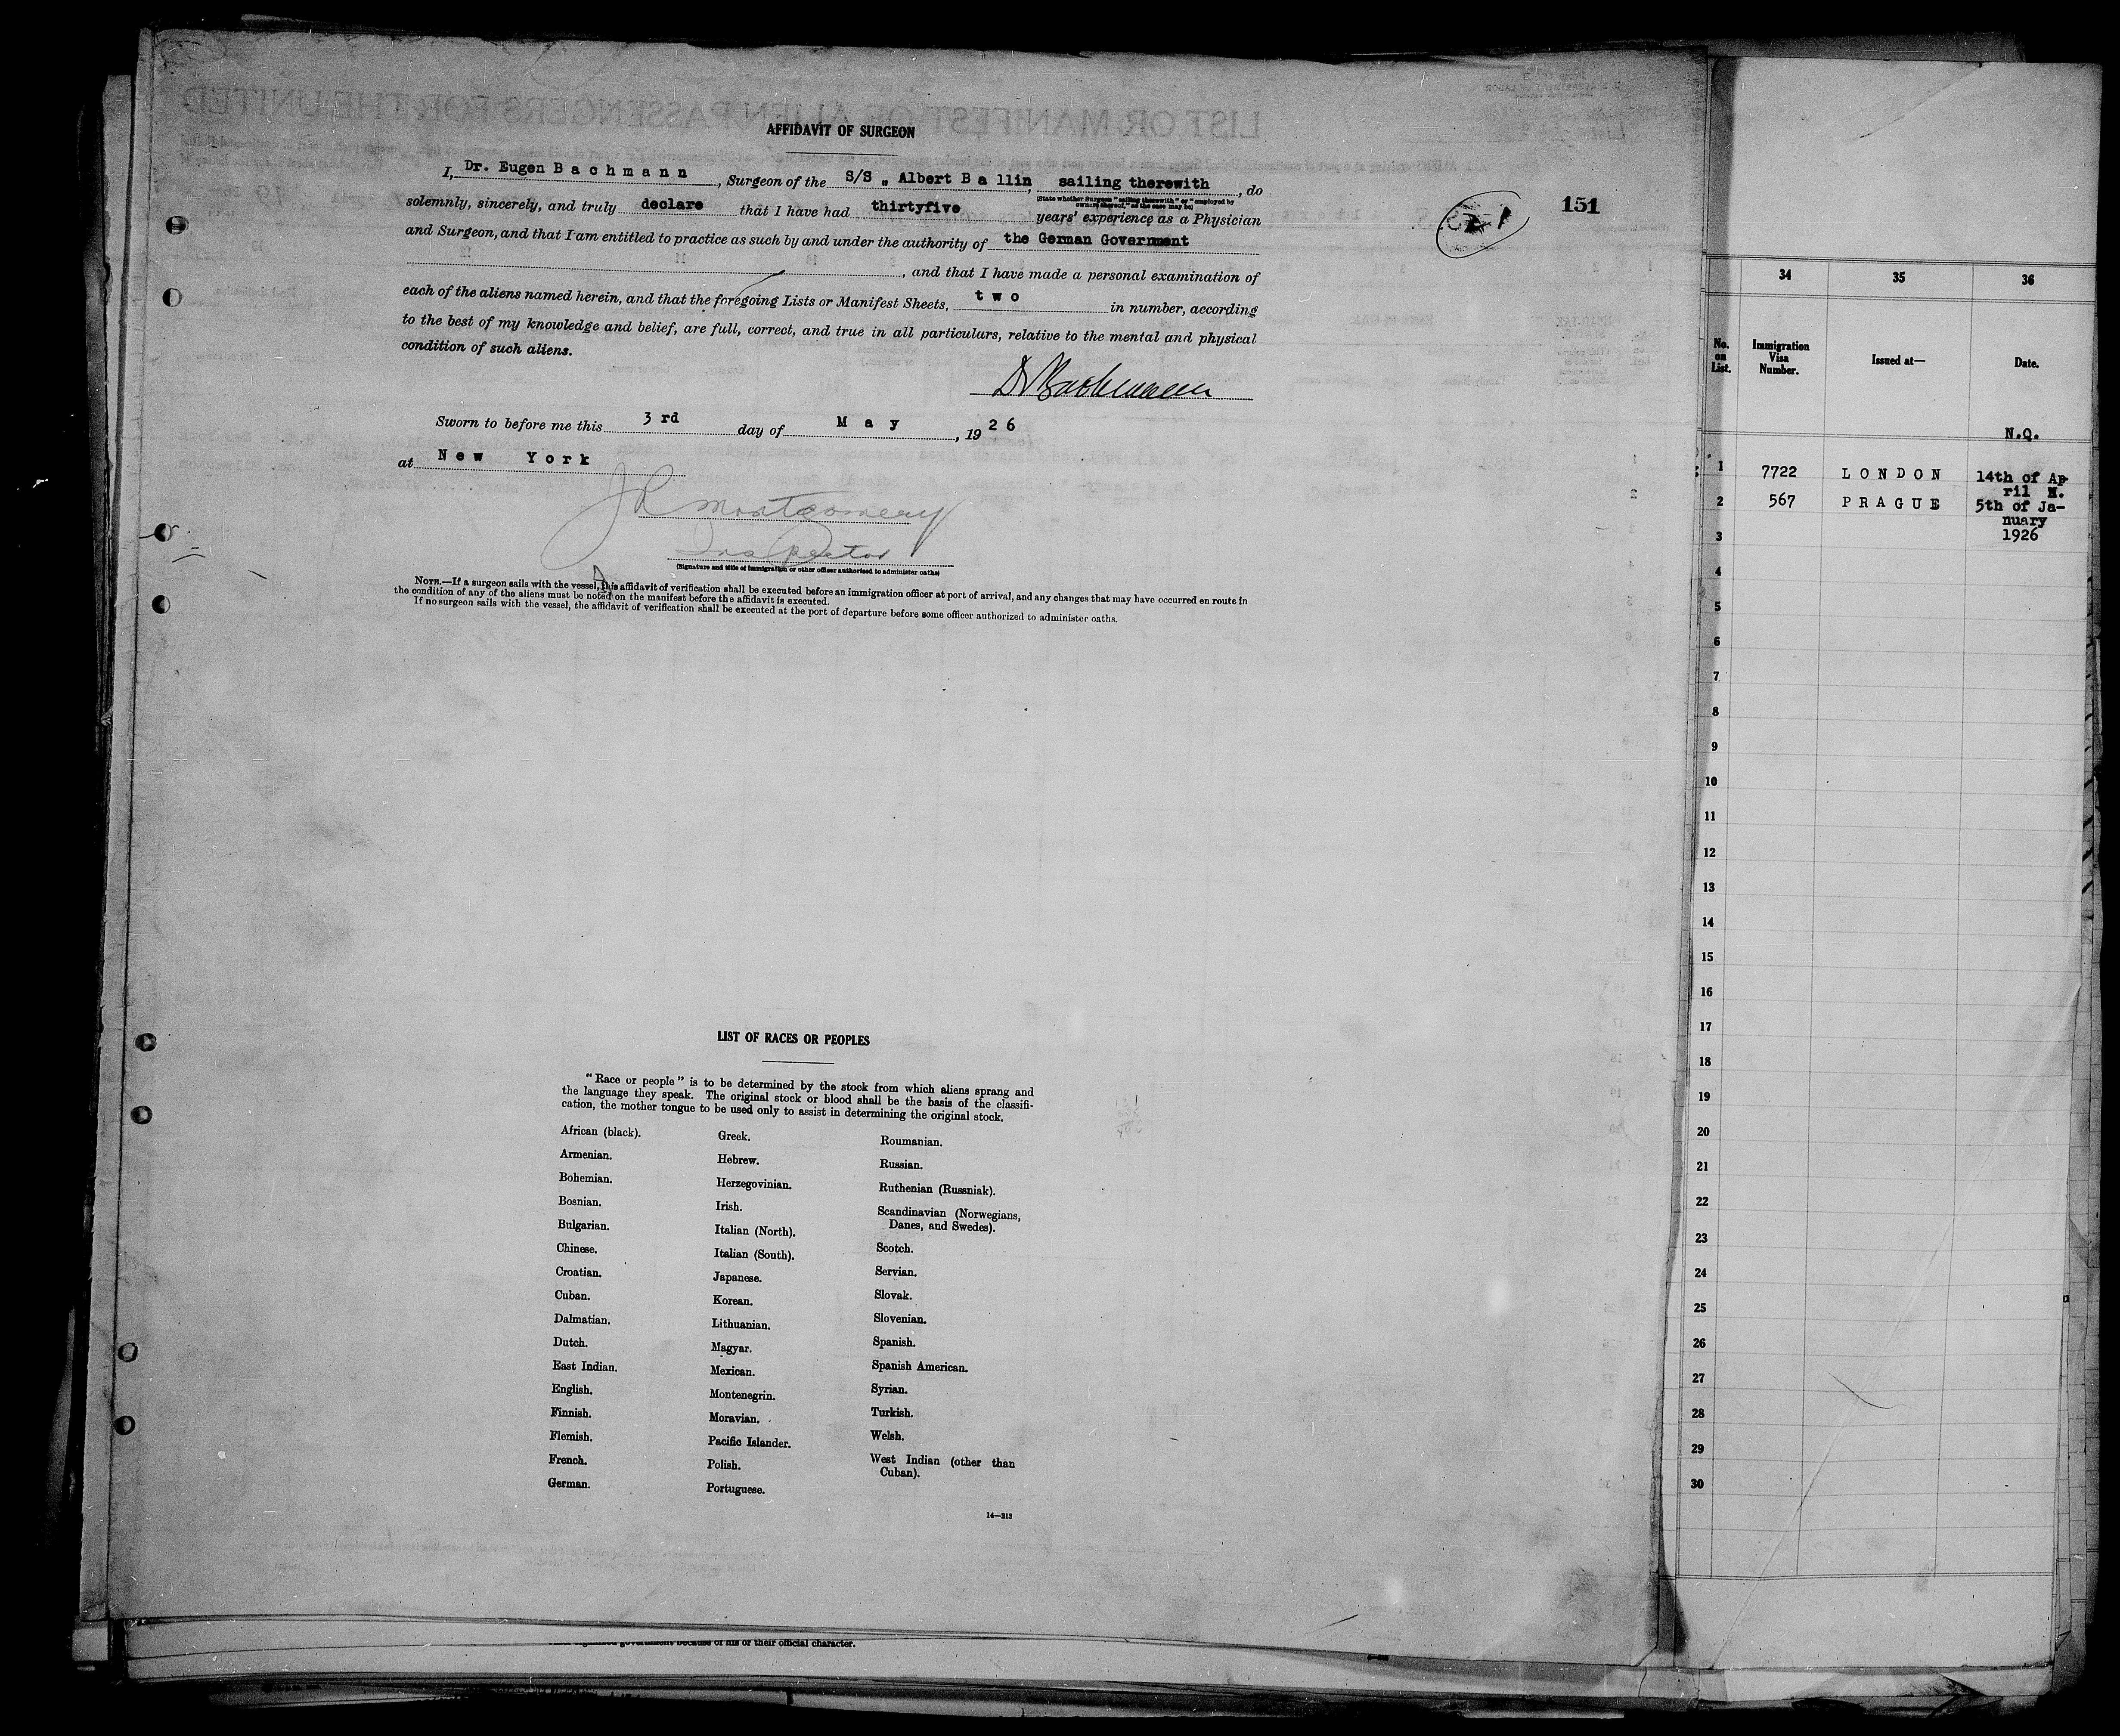 AFFIDAVIT OF SURGEON
I, Dr. Eugen Bachmann, Surgeon of the S/S „ Albert Ballin, sailing therewith, do
(State whether Surgeon "sailing therewith" or "employed by
owners thereof," as the case may be)
solemnly, sincerely, and truly declare that I have had thirtyfive years' experience as a Physician
and Surgeon, and that I am entitled to practice as such by and under the authority of the German Government
, and that I have made a personal examination of
each of the aliens named herein, and that the foregoing Lists or Manifest Sheets, two in number, according
to the best of my knowledge and belief, are full, correct, and true in all particulars, relative to the mental and physical
condition of such aliens.
Dr Bachmann
Sworn to before me this 3rd day of May, 1926
at New York
J R Montgomery
Inspector
(Signature and title of immigration or other officer authorized to administer oaths)
NOTE.—If a surgeon sails with the vessel, this affidavit of verification shall be executed before an immigration officer at port of arrival, and any changes that may have occurred en route in
the condition of any of the aliens must be noted on the manifest before the affidavit is executed.
If no surgeon sails with the vessel, the affidavit of verification shall be executed at the port of departure before some officer authorized to administer oaths.
151
LIST OF RACES OR PEOPLES
"Race or people" is to be determined by the stock from which aliens sprang and
the language they speak. The original stock or blood shall be the basis of the classifi-
cation, the mother tongue to be used only to assist in determining the original stock.
African (black).
Armenian.
Bohemian.
Bosnian.
Bulgarian.
Chinese.
Croatian.
Cuban.
Dalmatian.
Dutch.
East Indian.
English.
Finnish.
Flemish.
French.
German.
Greek.
Hebrew.
Herzegovinian.
Irish.
Italian (North).
Italian (South).
Japanese.
Korean.
Lithuanian.
Magyar.
Mexican.
Montenegrin.
Moravian.
Pacific Islander.
Polish.
Portuguese.
Roumanian.
Russian.
Ruthenian (Russniak).
Scandinavian (Norwegians,
Danes, and Swedes).
Scotch.
Servian.
Slovak.
Slovenian.
Spanish.
Spanish American.
Syrian.
Turkish.
Welsh.
West Indian (other than
Cuban).
14—213
government because of his or their official character.
34 35 36
No. on List. Immigration Visa Number. Issued at— Date.
N.Q.
1 7722 LONDON 14th of Ap
ril N.
2 567 PRAGUE 5th of Ja-
nuary
3 1926
4
5
6
7
8
9
10
11
12
13
14
15
16
17
18
19
20
21
22
23
24
25
26
27
28
29
30